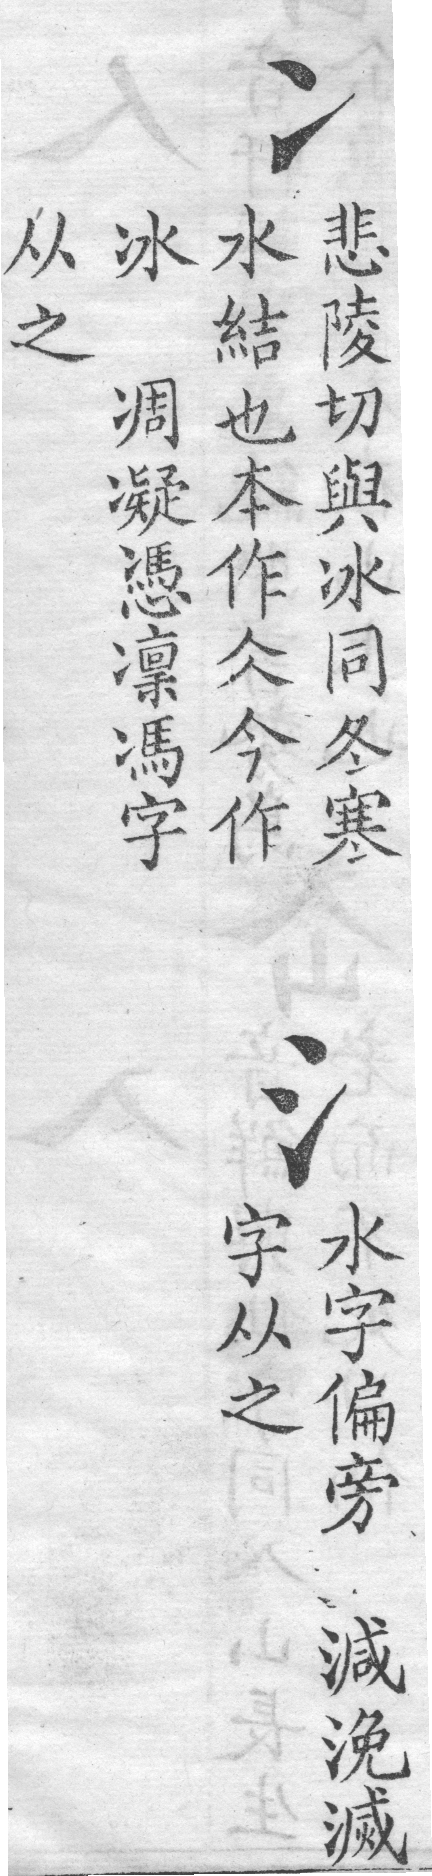 冫
悲陵切與冰同冬寒
水結也本作仌今作
冰　凋凝憑凜馮字
从之
氵
水字偏旁　減浼滅
字从之